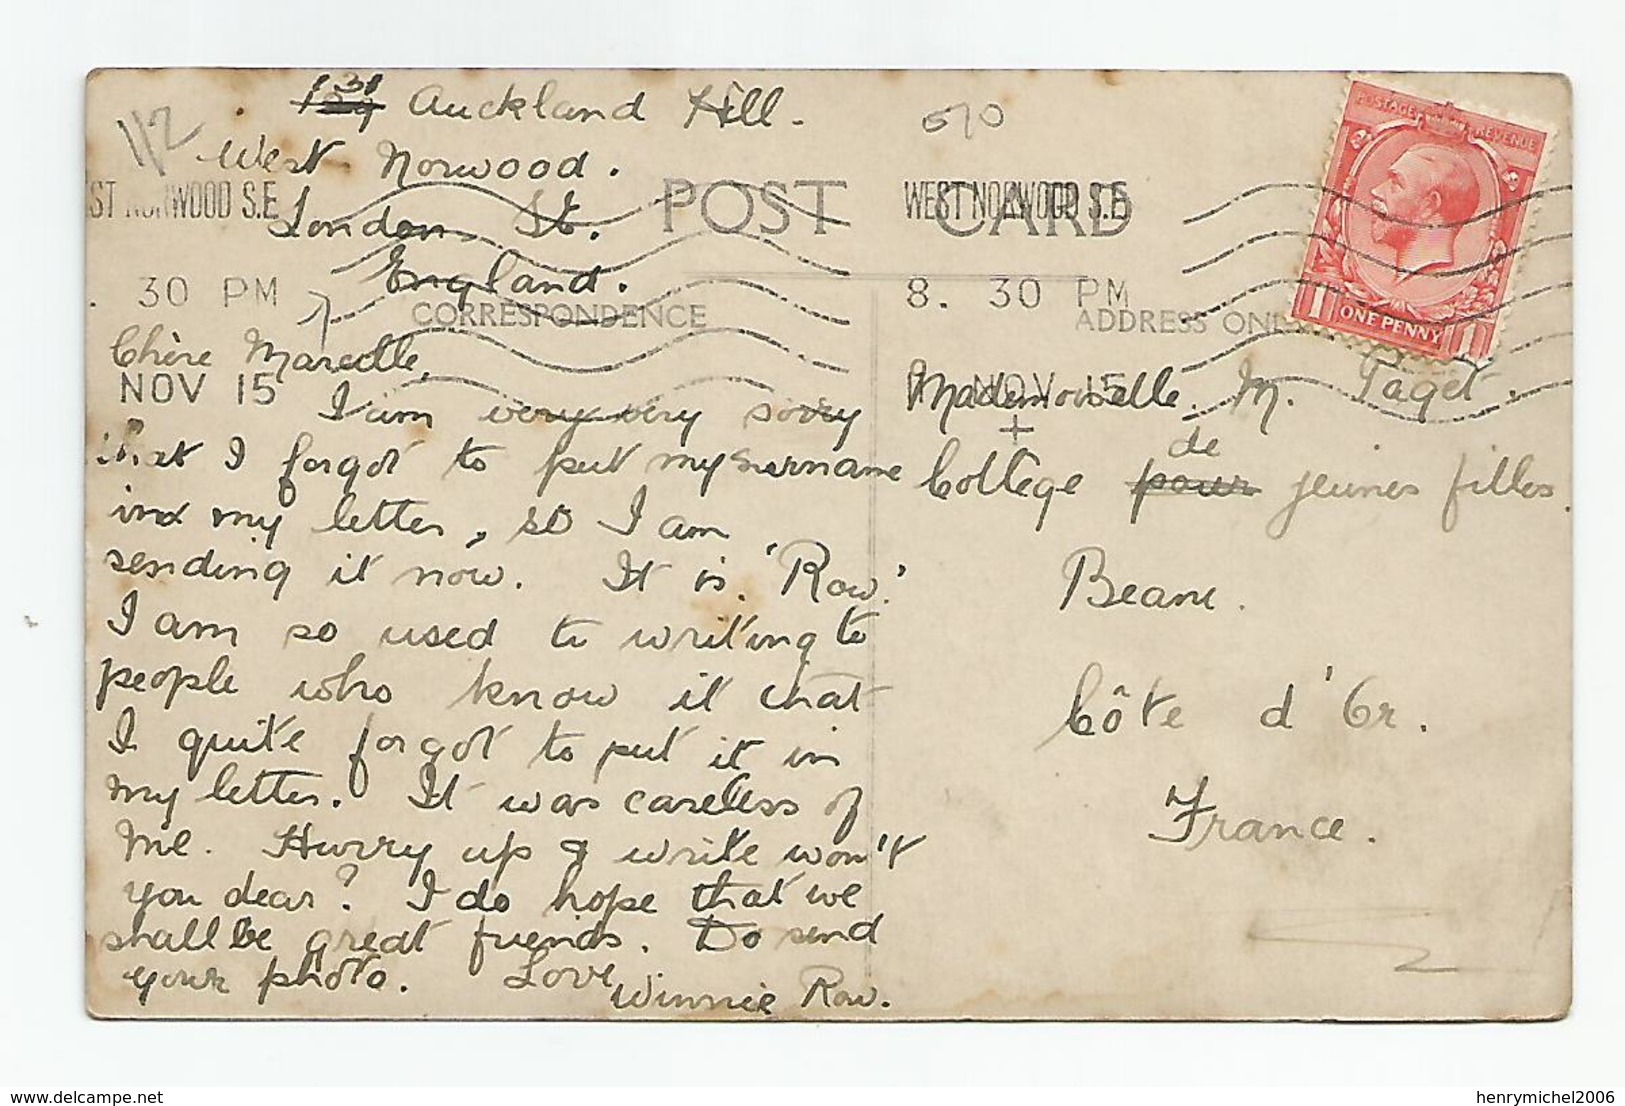 131 Auckland Hill.
West Norwood.
London. St.
England.
1/2
670
POST CARD
WEST NORWOOD S.E
WEST NORWOOD S.E
30 PM
NOV 15
8. 30 PM
NOV 15
CORRESPONDENCE
ADDRESS ONL
POSTAGE REVENUE
ONE PENNY
Chère Marcelle,
I am very very sorry
that I forgot to put my surname
in my letter, so I am
sending it now. It is 'Row.'
I am so used to writing to
people who know it that
I quite forgot to put it in
my letter. It was careless of
me. Hurry up & write won't
you dear? I do hope that we
shall be great friends. Do send
your photo. Love
Winnie Row.
Mademoiselle. M. Paget.
Collège pour de jeunes filles.
Beane.
Côte d'Or.
France.
delcampe.net
henrymichel2006